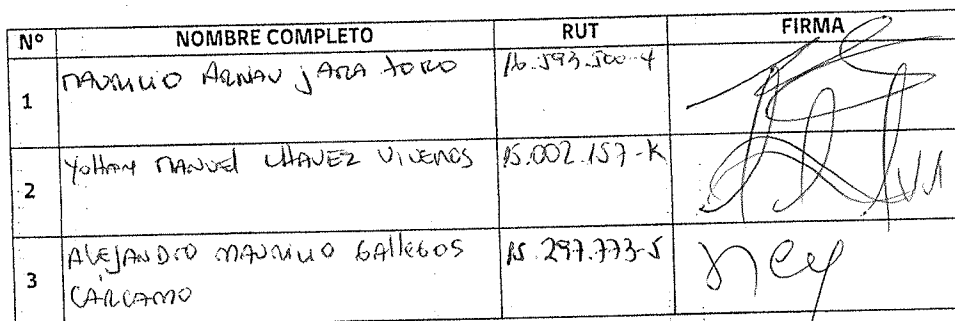 Nº NOMBRE COMPLETO RUT FIRMA
1 MAURICIO ARNAU JARA TORO 16.593.500-4
2 YOHAN MANUEL CHAVEZ VIVEROS 15.002.157-K
3 ALEJANDRO MAURICIO GALLEGOS 15.297.773-5
CÁRCAMO